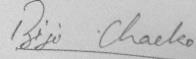 Biji Chacko